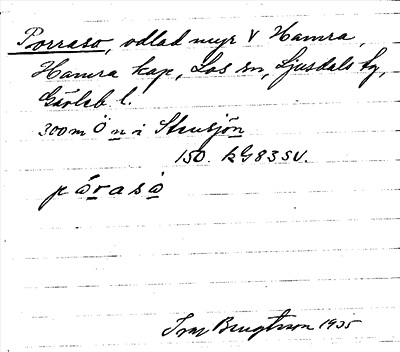 Porraso, odlad myr V Hamra,
Hamra kap, Los sn, Ljusdals tg,
Gävleb l.
300 m Ö n i Stensjön
150. kG83SV.
påraså
Bengtsson 1935